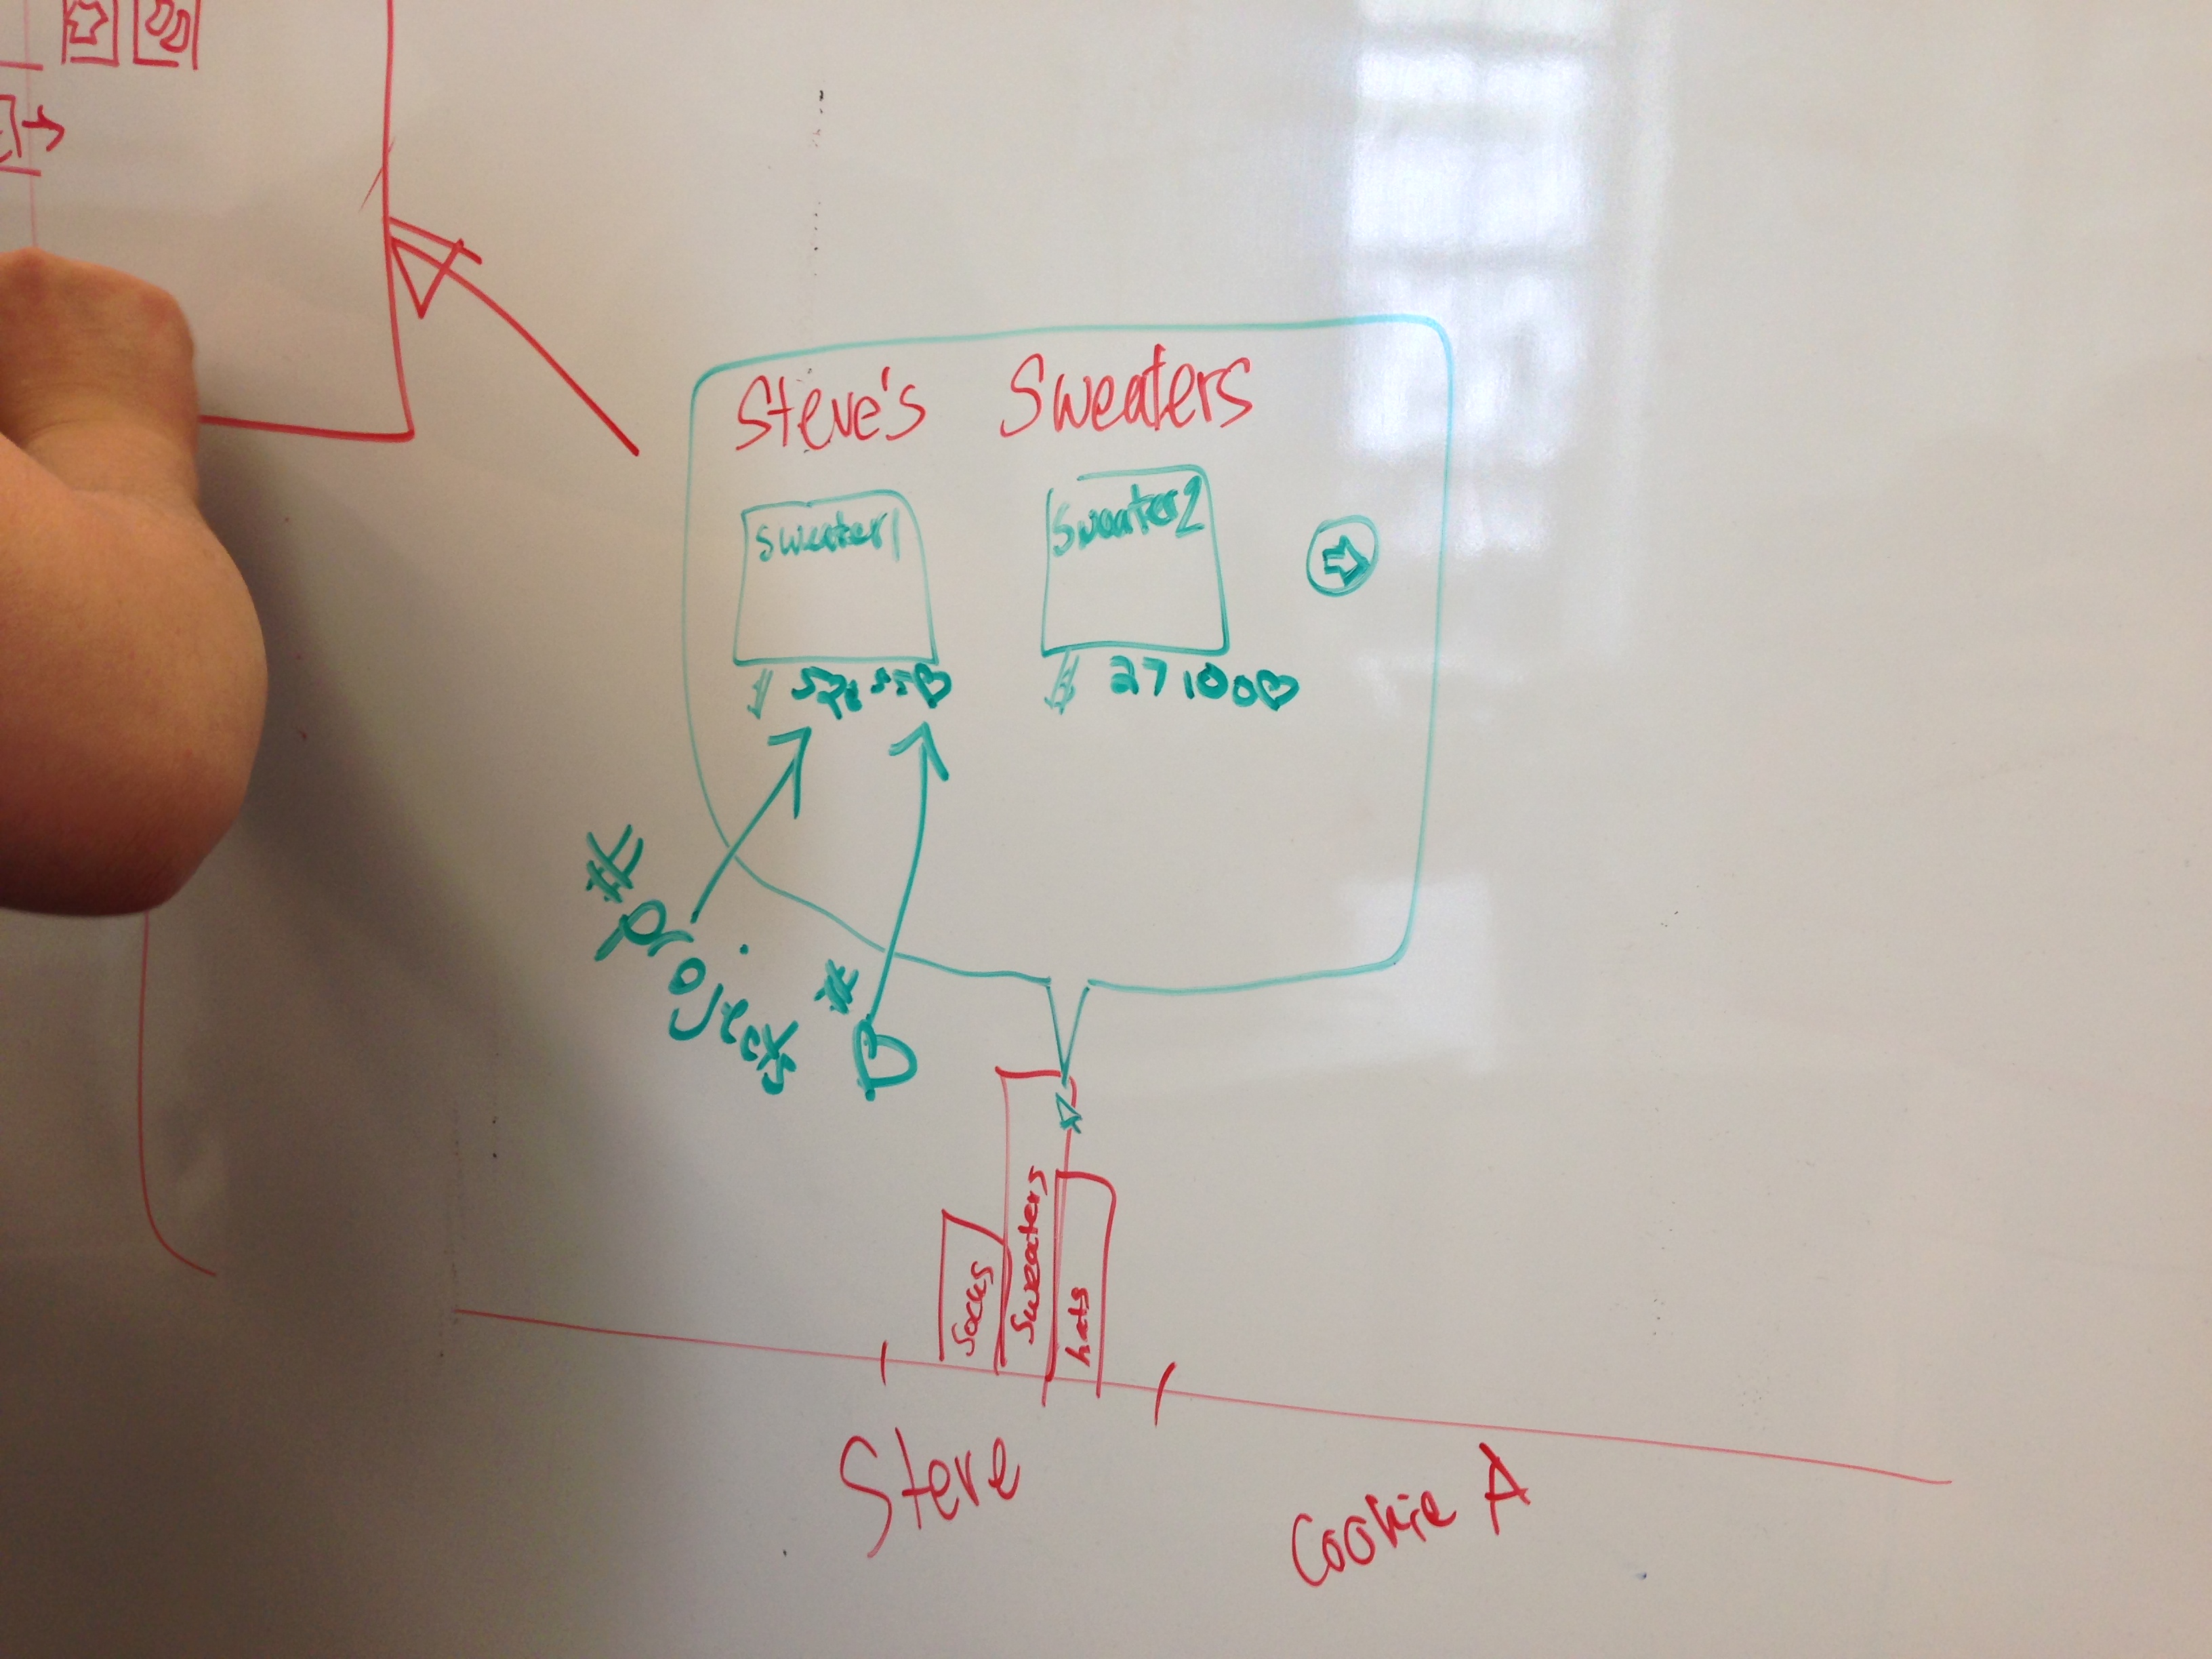 Steve's Sweaters
Sweater1
Sweater2
27 100
# projects
#
Socks
Sweaters
hats
Steve
Cookie A